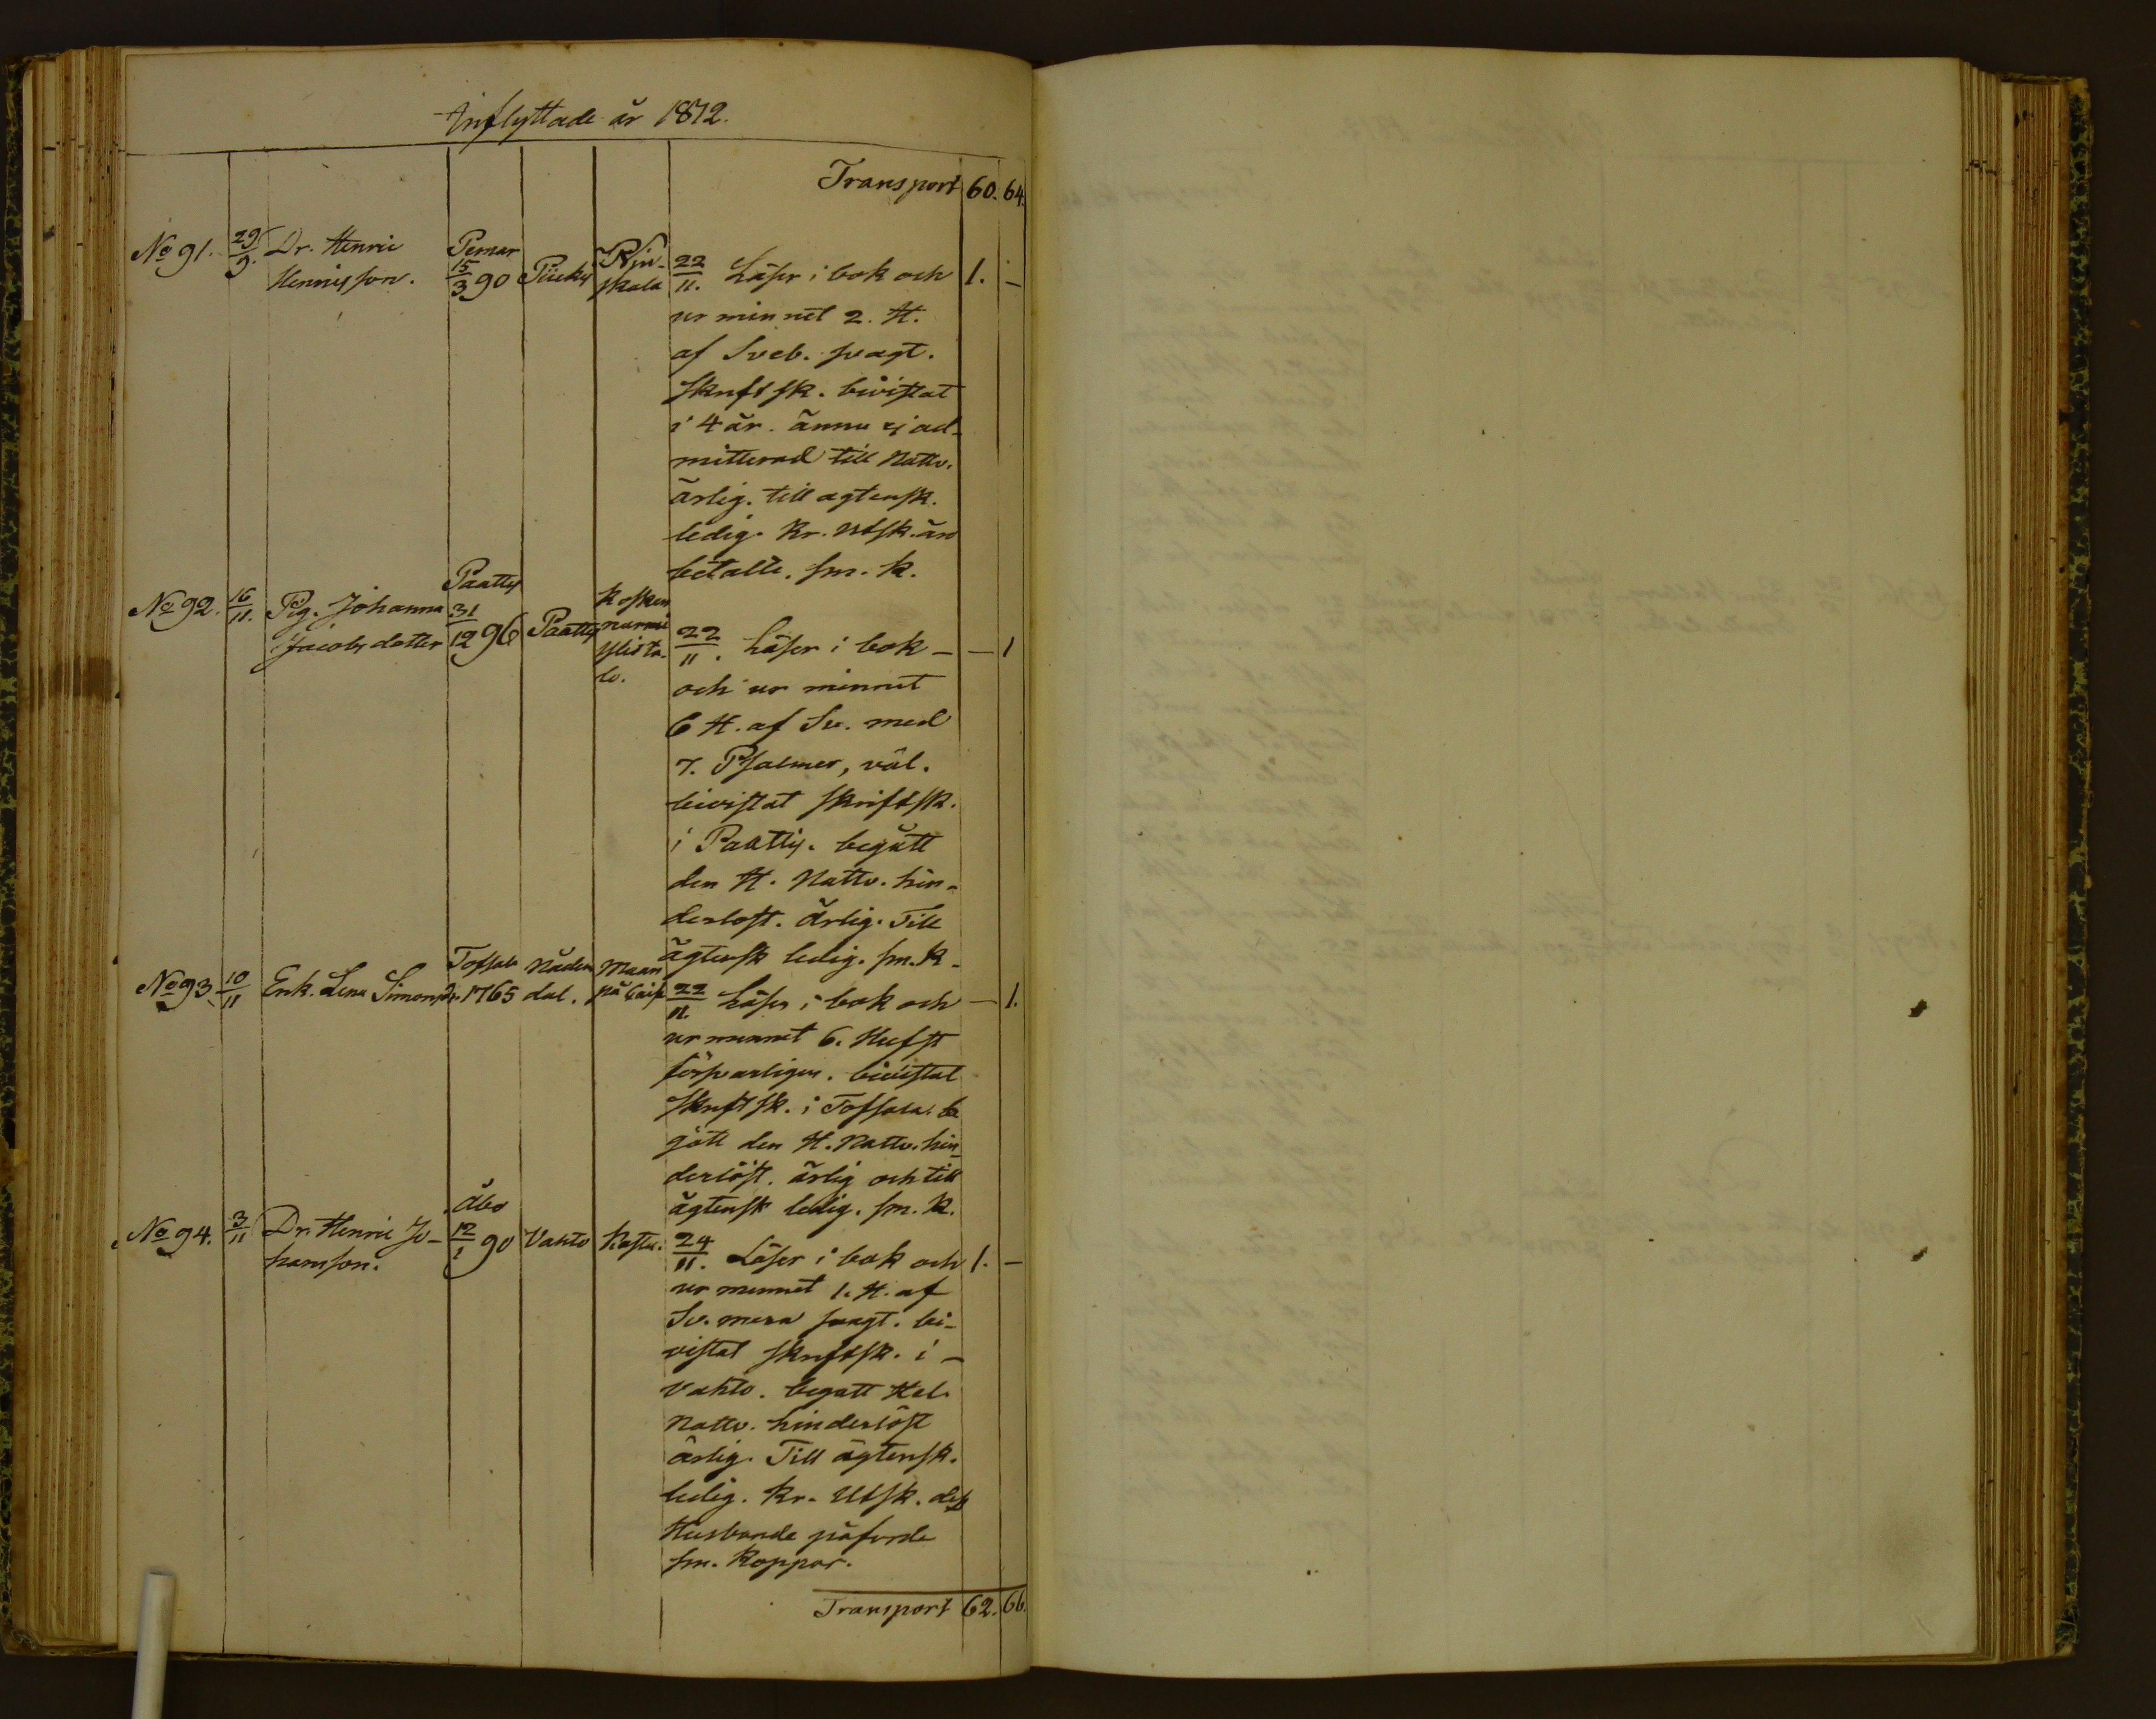 Inflyttade år 1812.
Transport 60. 64.
No 91. 29/9. Dr. Henric Hennisson. Pemar 15/3 90 Piickis skala 22/11. Läser i bok och 1. —
ur minnet 2. H.
af Sveb. svagt.
skriftsk. bivistat
i 4 år. ännu ej ad-
mitterad till Nattv.
ärlig. till ägtensk.
ledig. Kr. Utsk. äro
betalte. sm. k.
No 92. 16/11. Pig. Johanna Jacobsdotter Paattis 31/12 96 Paattis Kosken nurmi Ylista- lo. 22/11. Läser i bok — — 1
och ur minnet
6 H. af Sv. med
7. Psalmer, väl.
bivistat skriftsk.
i Paattis. begått
den H. Nattv. hin-
derlöst. ärlig. Till
ägtensk ledig. sm. K.
No 93 10/11 Enk. Lena Simonsdr. Tofsala 1765 Nådendal. Maan pä 22/11. Läser i bok och — 1.
ur minnet 6. Hufst
försvarligen. bivistat
skriftsk. i Tofsala. be
gått den H. Nattv. hin-
derlöst. ärlig och till
ägtensk ledig. sm. K.
No 94. 3/11 Dr. Henric Jo- hansson. Åbo 12/1 90 Vahto 24/11. Läser i bok och 1. —
ur minnet 1. H. af
Sv. mera svagt. bi-
vistat skriftsk. i —
Vahto. begått Hel.
Nattv. hinderlöst
ärlig. Till ägtensk.
ledig. Kr. Utsk. dess
Husbonde påförde
sm. Koppor.
Transport 62. 66.